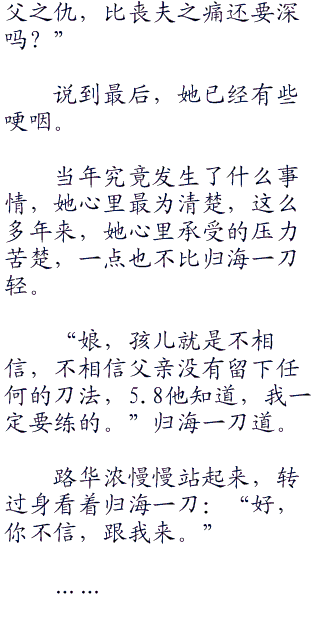 父之仇，比丧夫之痛还要深
吗？”
说到最后，她已经有些
哽咽。
当年究竟发生了什么事
情，她心里最为清楚，这么
多年来，她心里承受的压力
苦楚，一点也不比归海一刀
轻。
“娘，孩儿就是不相
信，不相信父亲没有留下任
何的刀法，5.8他知道，我一
定要练的。”归海一刀道。
路华浓慢慢站起来，转
过身看着归海一刀：“好，
你不信，跟我来。”
……